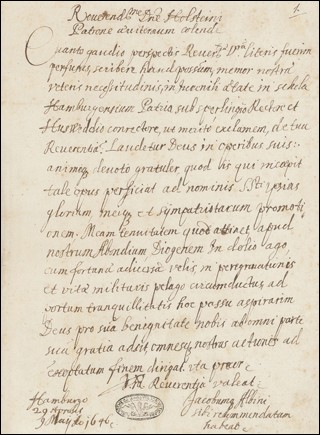 1
Reverend^me D^ne Holsteni
Patrone aviternum colende
Quanto gaudio perspectis Rever: V^rae literis fuerim
perfusus, scribere haud possum, memor nostrae
veteris necessitudinis, in juvenili aetate in schola
Hamburgensium Patria, sub Sperlingio Rectore et
Huswedelio conrectore, ut merito exclamem, de tua
Reverentia. Laudetur Deus in operibus suis:
animoq devoto gratuler, quod bis qui incoepit
tale opus perficiat ad nominis sui ipsius
gloriam, meiq et sympatriotarum promoti
onem. Meam tenuitatem quod attinet, apud
nostrum Diogenem in dolio ago,
cum fortuna adversa velis, in peregrinationis
et vitae militaris pelago circumductus, ad
portum tranquillitatis hoc possu aspirarim
Deus pro sua benignitate nobis ab omni parte
sua gratia adsit, omnesq nostras actiones ad
exoptatum finem dirigat. Uta precor
V^ra Reverentia valeat
Hamburgo
29 Aprilis
9 Maij A^o 1646
Jacobum Albini
sibi recommendatum
habeat